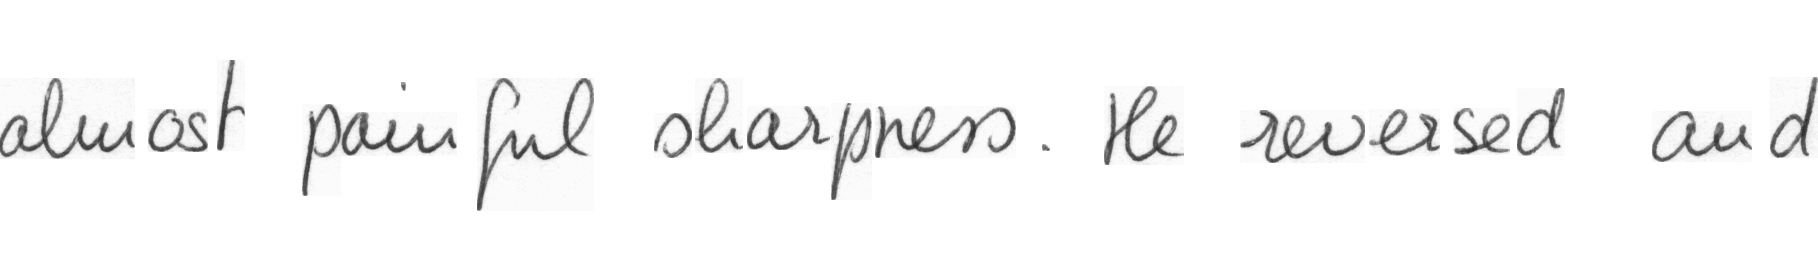 almost painful sharpness. He reversed and